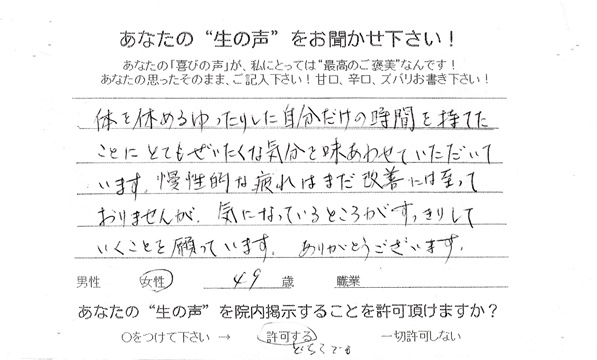 あなたの “生の声” をお聞かせ下さい！
あなたの「喜びの声」が、私にとっては“最高のご褒美”なんです！
あなたの思ったそのまま、ご記入下さい！甘口、辛口、ズバリお書き下さい！
体を休めるゆったりした自分だけの時間を持てた
ことにとてもぜいたくな気分を味あわせていただいて
います。慢性的な疲れはまだ改善には至って
おりませんが、気になっているところがすっきりして
いくことを願っています。ありがとうございます。
男性 女性 49 歳 職業
あなたの “生の声” を院内掲示することを許可頂けますか？
○をつけて下さい → 許可する 一切許可しない
どちらでも